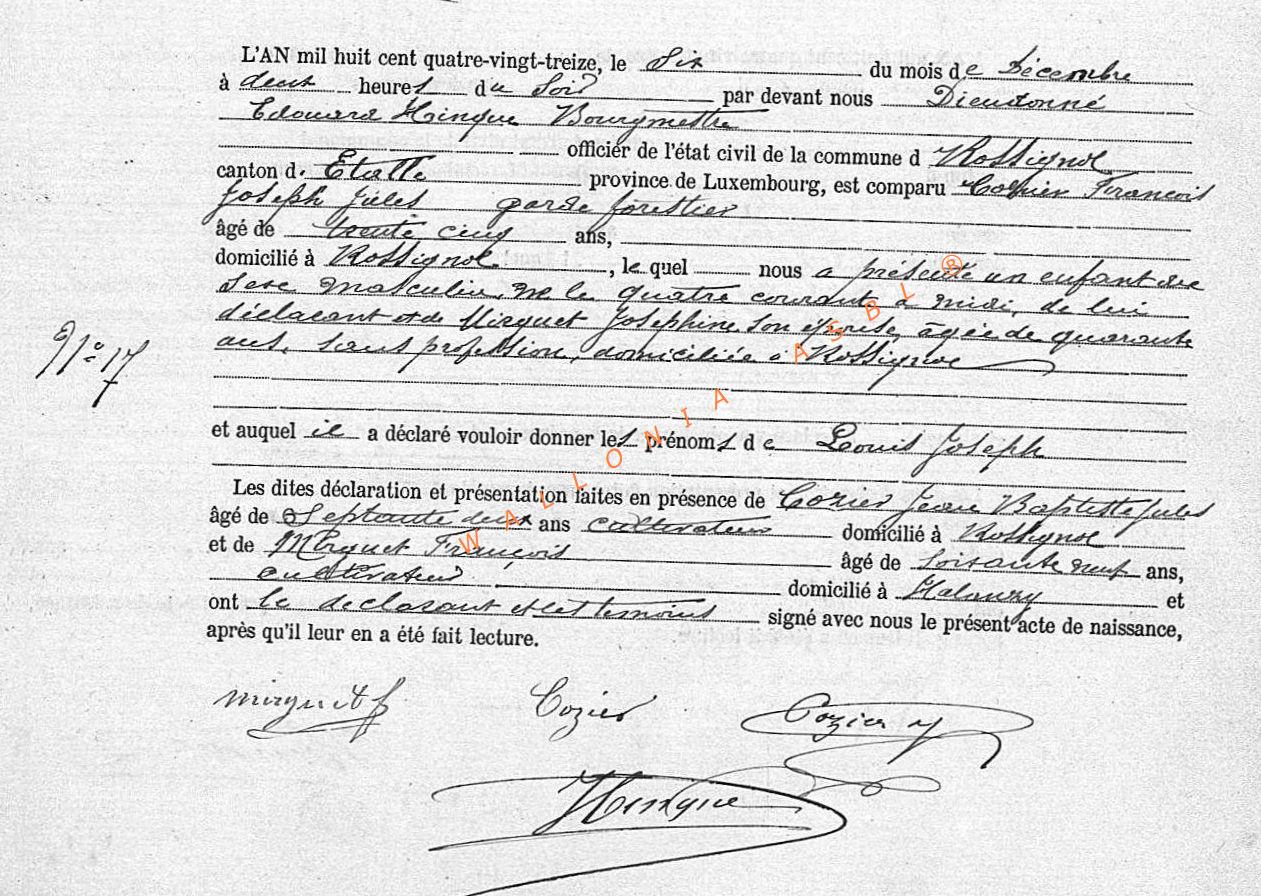 L'AN mil huit cent quatre-vingt-treize, le Six du mois de Décembre
à deux heures du Soir par devant nous Dieudonné
Edouard Hinque Bourgmestre
officier de l'état civil de la commune d Rossignol
canton d. Etalle province de Luxembourg, est comparu Cozier François
Joseph Jules garde forestier
âgé de trente cinq ans,
domicilié à Rossignol, le quel nous a présenté un enfant du
Sexe masculin, né le quatre courant à midi, de lui
déclarant et de Mirguet Joséphine son épouse, agée de quarante
ans, sans profession, domiciliée à Rossignol
N° 17
et auquel il a déclaré vouloir donner les prénoms de Louis Joseph
Les dites déclaration et présentation faites en présence de Cozier Jean Baptiste Jules
âgé de Septante deux ans cultivateur domicilié à Rossignol
et de Mirguet François âgé de soixante neuf ans,
cultivateur domicilié à et
ont le déclarant et les témoins signé avec nous le présent acte de naissance,
après qu'il leur en a été fait lecture.
mirguet f Cozier Cozier J
Hinque
WALLONIA ASBL ®